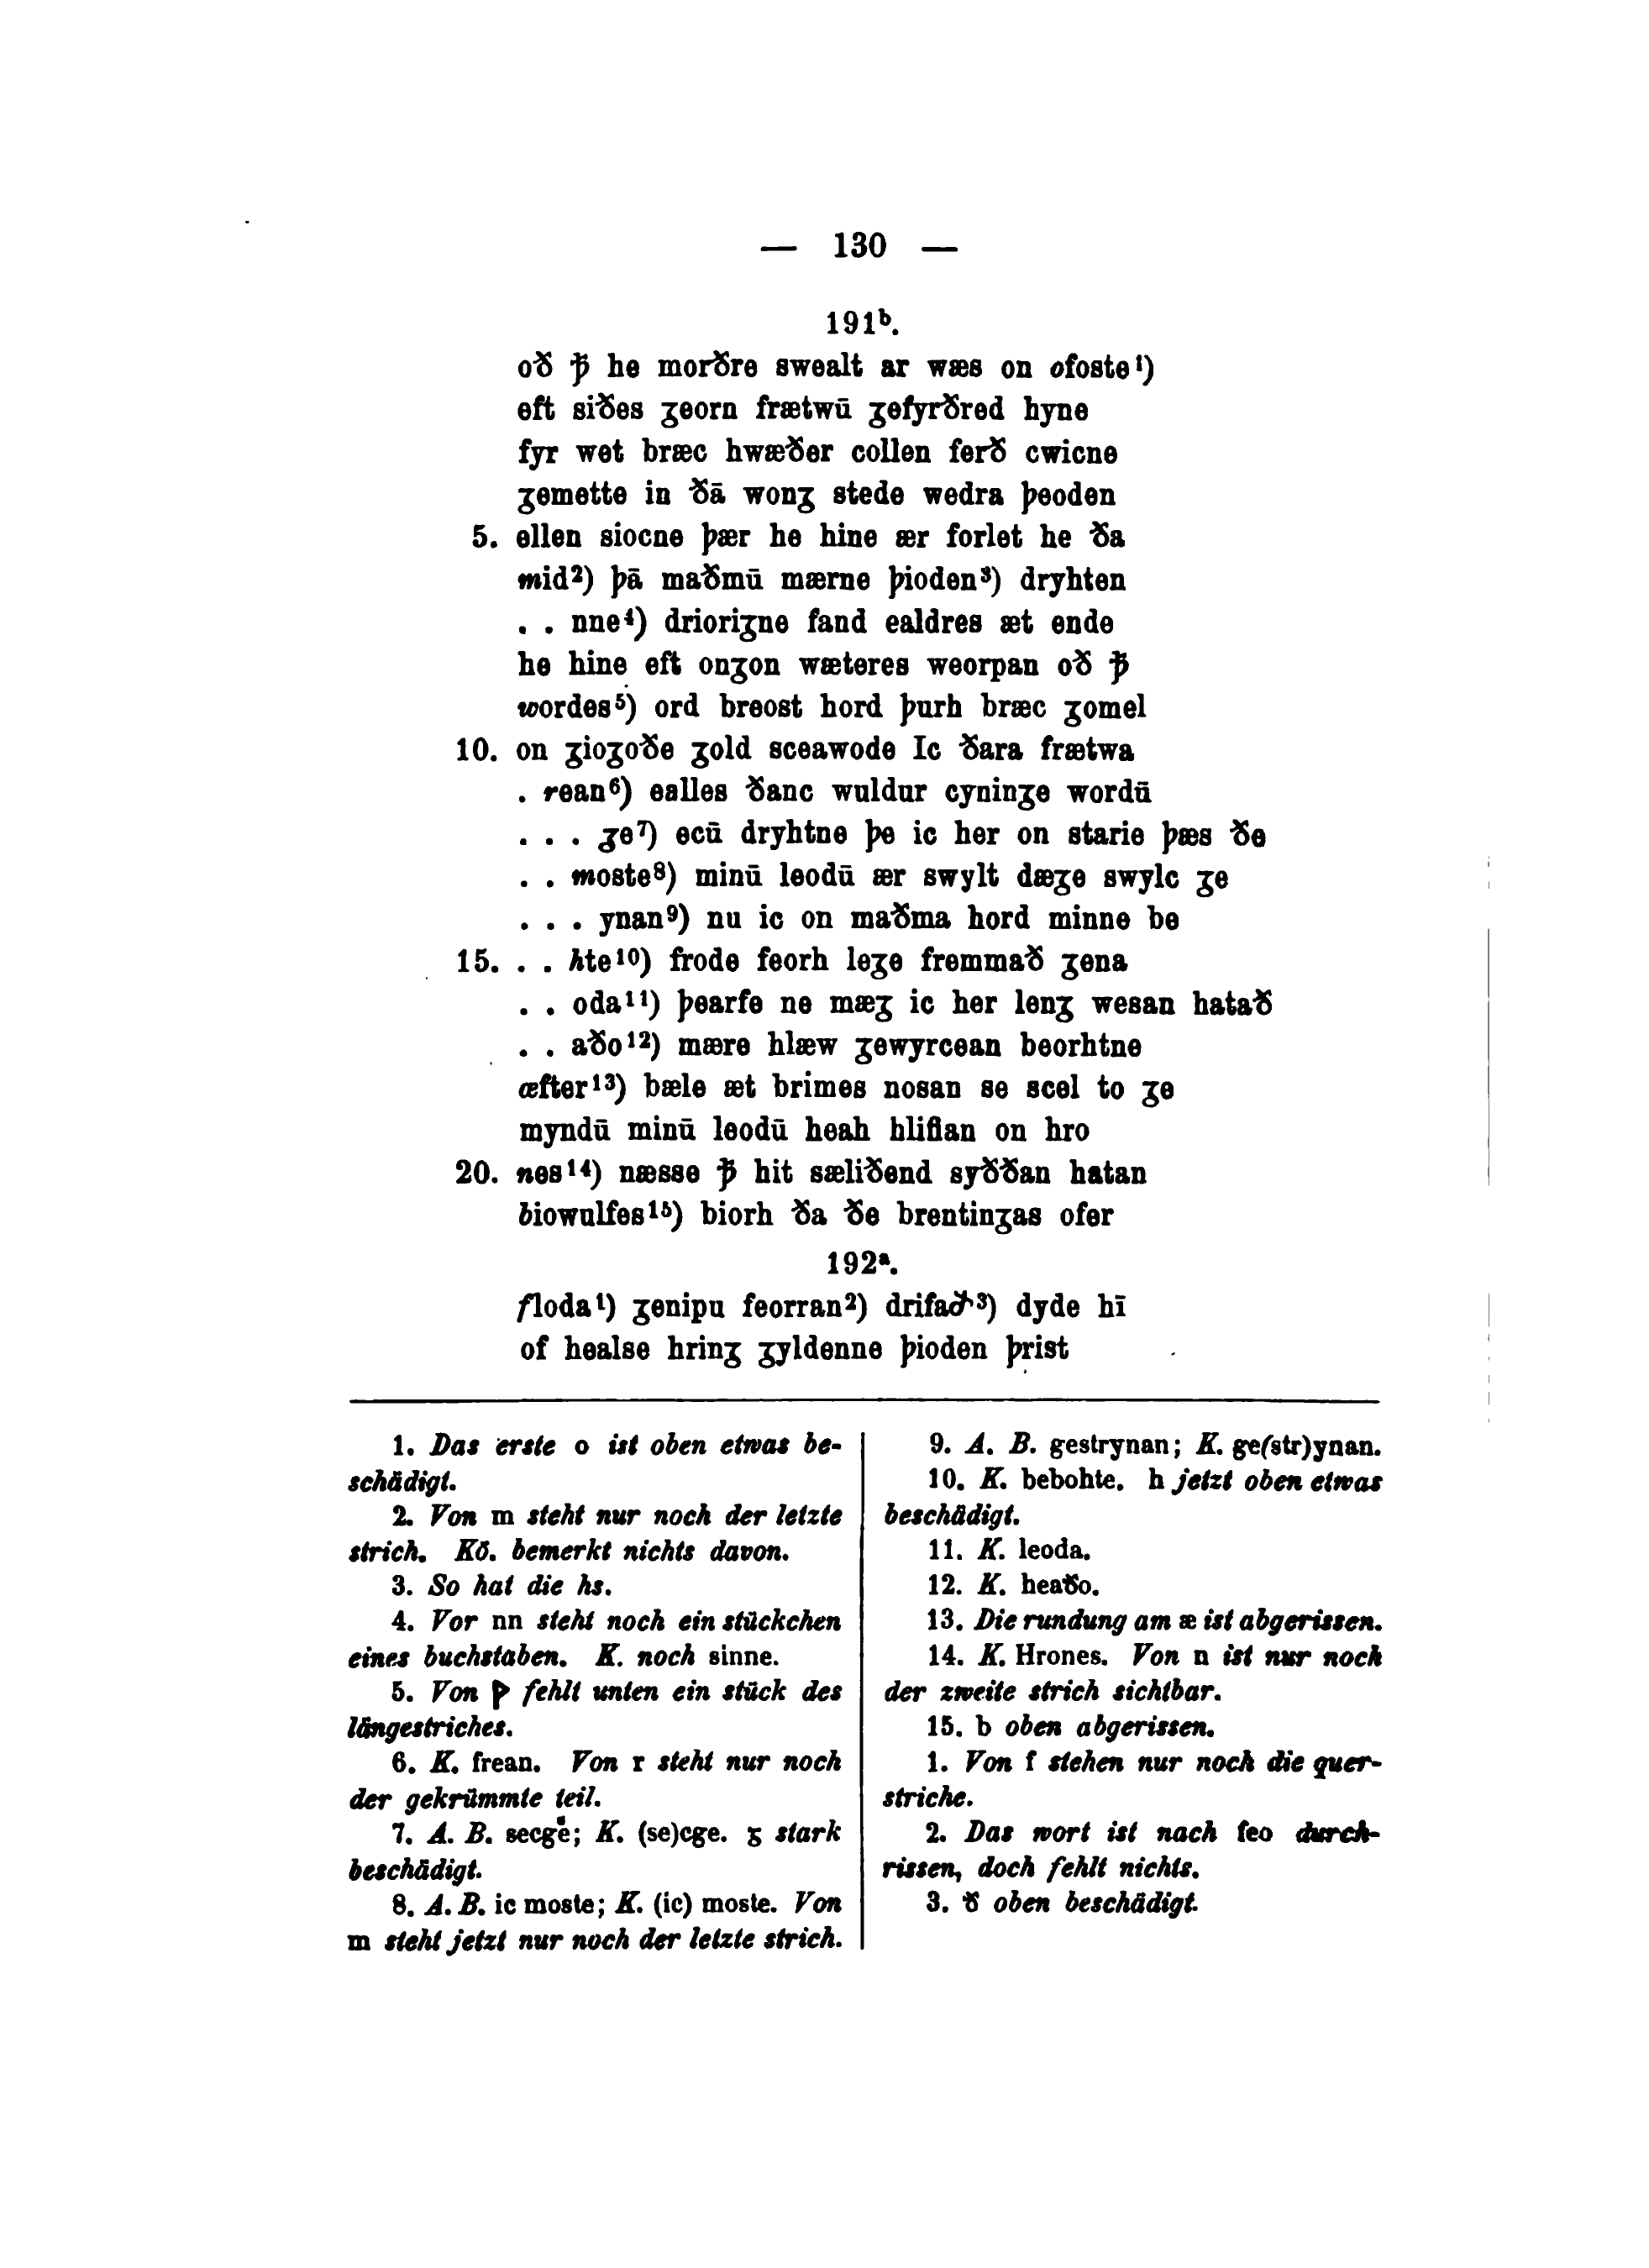 — 130 —
191ᵇ.
oð ꝥ he morðre swealt ar wæs on ofoste¹)
eft siðes ʒeorn frætwū ʒefyrðred hyne
fyr wet bræc hwæðer collen ferð cwicne
ʒemette in ðā wonʒ stede wedra þeoden
5. ellen siocne þær he hine ær forlet he ða
mid²) þā maðmū mærne þioden³) dryhten
. . nne⁴) drioriʒne fand ealdres æt ende
he hine eft onʒon wæteres weorpan oð ꝥ
wordes⁵) ord breost hord þurh bræc ʒomel
10. on ʒioʒoðe ʒold sceawode Ic ðara frætwa
. rean⁶) ealles ðanc wuldur cyninʒe wordū
. . . ʒe⁷) ecū dryhtne þe ic her on starie þæs ðe
. . moste⁸) minū leodū ær swylt dæʒe swylc ʒe
. . . ynan⁹) nu ic on maðma hord minne be
15. . . hte¹⁰) frode feorh leʒe fremmað ʒena
. . oda¹¹) þearfe ne mæʒ ic her lenʒ wesan hatað
. . aðo¹²) mære hlæw ʒewyrcean beorhtne
æfter¹³) bæle æt brimes nosan se scel to ʒe
myndū minū leodū heah hlifian on hro
20. nes¹⁴) næsse ꝥ hit sæliðend syððan hatan
biowulfes¹⁵) biorh ða ðe brentinʒas ofer
192ᵃ.
floda¹) ʒenipu feorran²) drifað³) dyde hī
of healse hrinʒ ʒyldenne þioden þrist
1. Das erste o ist oben etwas be-
schädigt.
2. Von m steht nur noch der letzte
strich. Kö. bemerkt nichts davon.
3. So hat die hs.
4. Vor nn steht noch ein stückchen
eines buchstaben. K. noch sinne.
5. Von ƿ fehlt unten ein stück des
längestriches.
6. K. frean. Von r steht nur noch
der gekrümmte teil.
7. A. B. secge; K. (se)cge. ʒ stark
beschädigt.
8. A. B. ic moste; K. (ic) moste. Von
m steht jetzt nur noch der letzte strich.
9. A. B. gestrynan; K. ge(str)ynan.
10. K. bebohte. h jetzt oben etwas
beschädigt.
11. K. leoda.
12. K. heaðo.
13. Die rundung am æ ist abgerissen.
14. K. Hrones. Von n ist nur noch
der zweite strich sichtbar.
15. b oben abgerissen.
1. Von f stehen nur noch die quer-
striche.
2. Das wort ist nach feo durch-
rissen, doch fehlt nichts.
3. ð oben beschädigt.